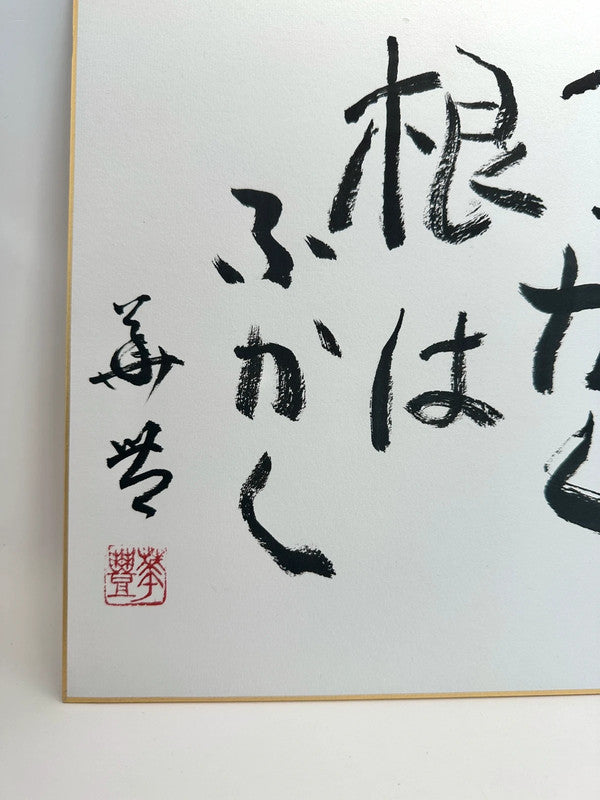 根は
ふかく
華豊
華豊